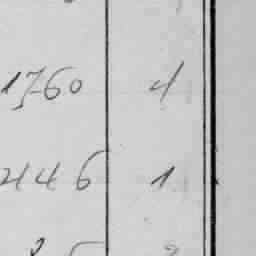 1760 4
446 1